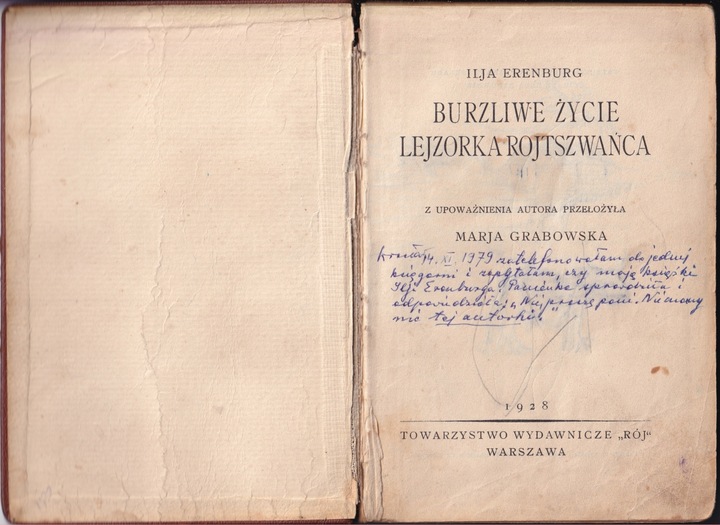 ILJA ERENBURG
BURZLIWE ŻYCIE
LEJZORKA ROJTSZWAŃCA
Z UPOWAŻNIENIA AUTORA PRZEŁOŻYŁA
MARJA GRABOWSKA
14. XI. 1979 zatelefonowałam do jednej
księgarni i zapytałam, czy mają książki
Ilji Erenburga. Panienka sprawdziła i
odpowiedziała: „Nie, proszę pani. Nie mamy
nic tej autorki."
1928
TOWARZYSTWO WYDAWNICZE „RÓJ"
WARSZAWA